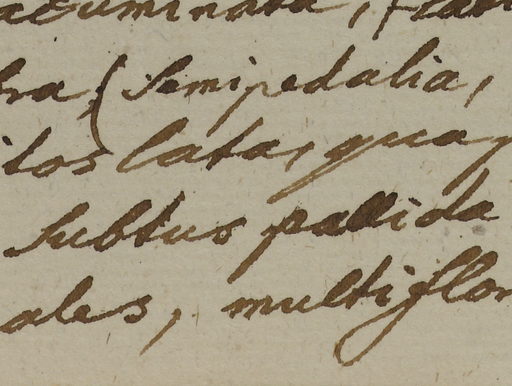 acuminata, 
bra, (Semipedalia,
itos lata, qua
Subtus pallida
ales, multiflor